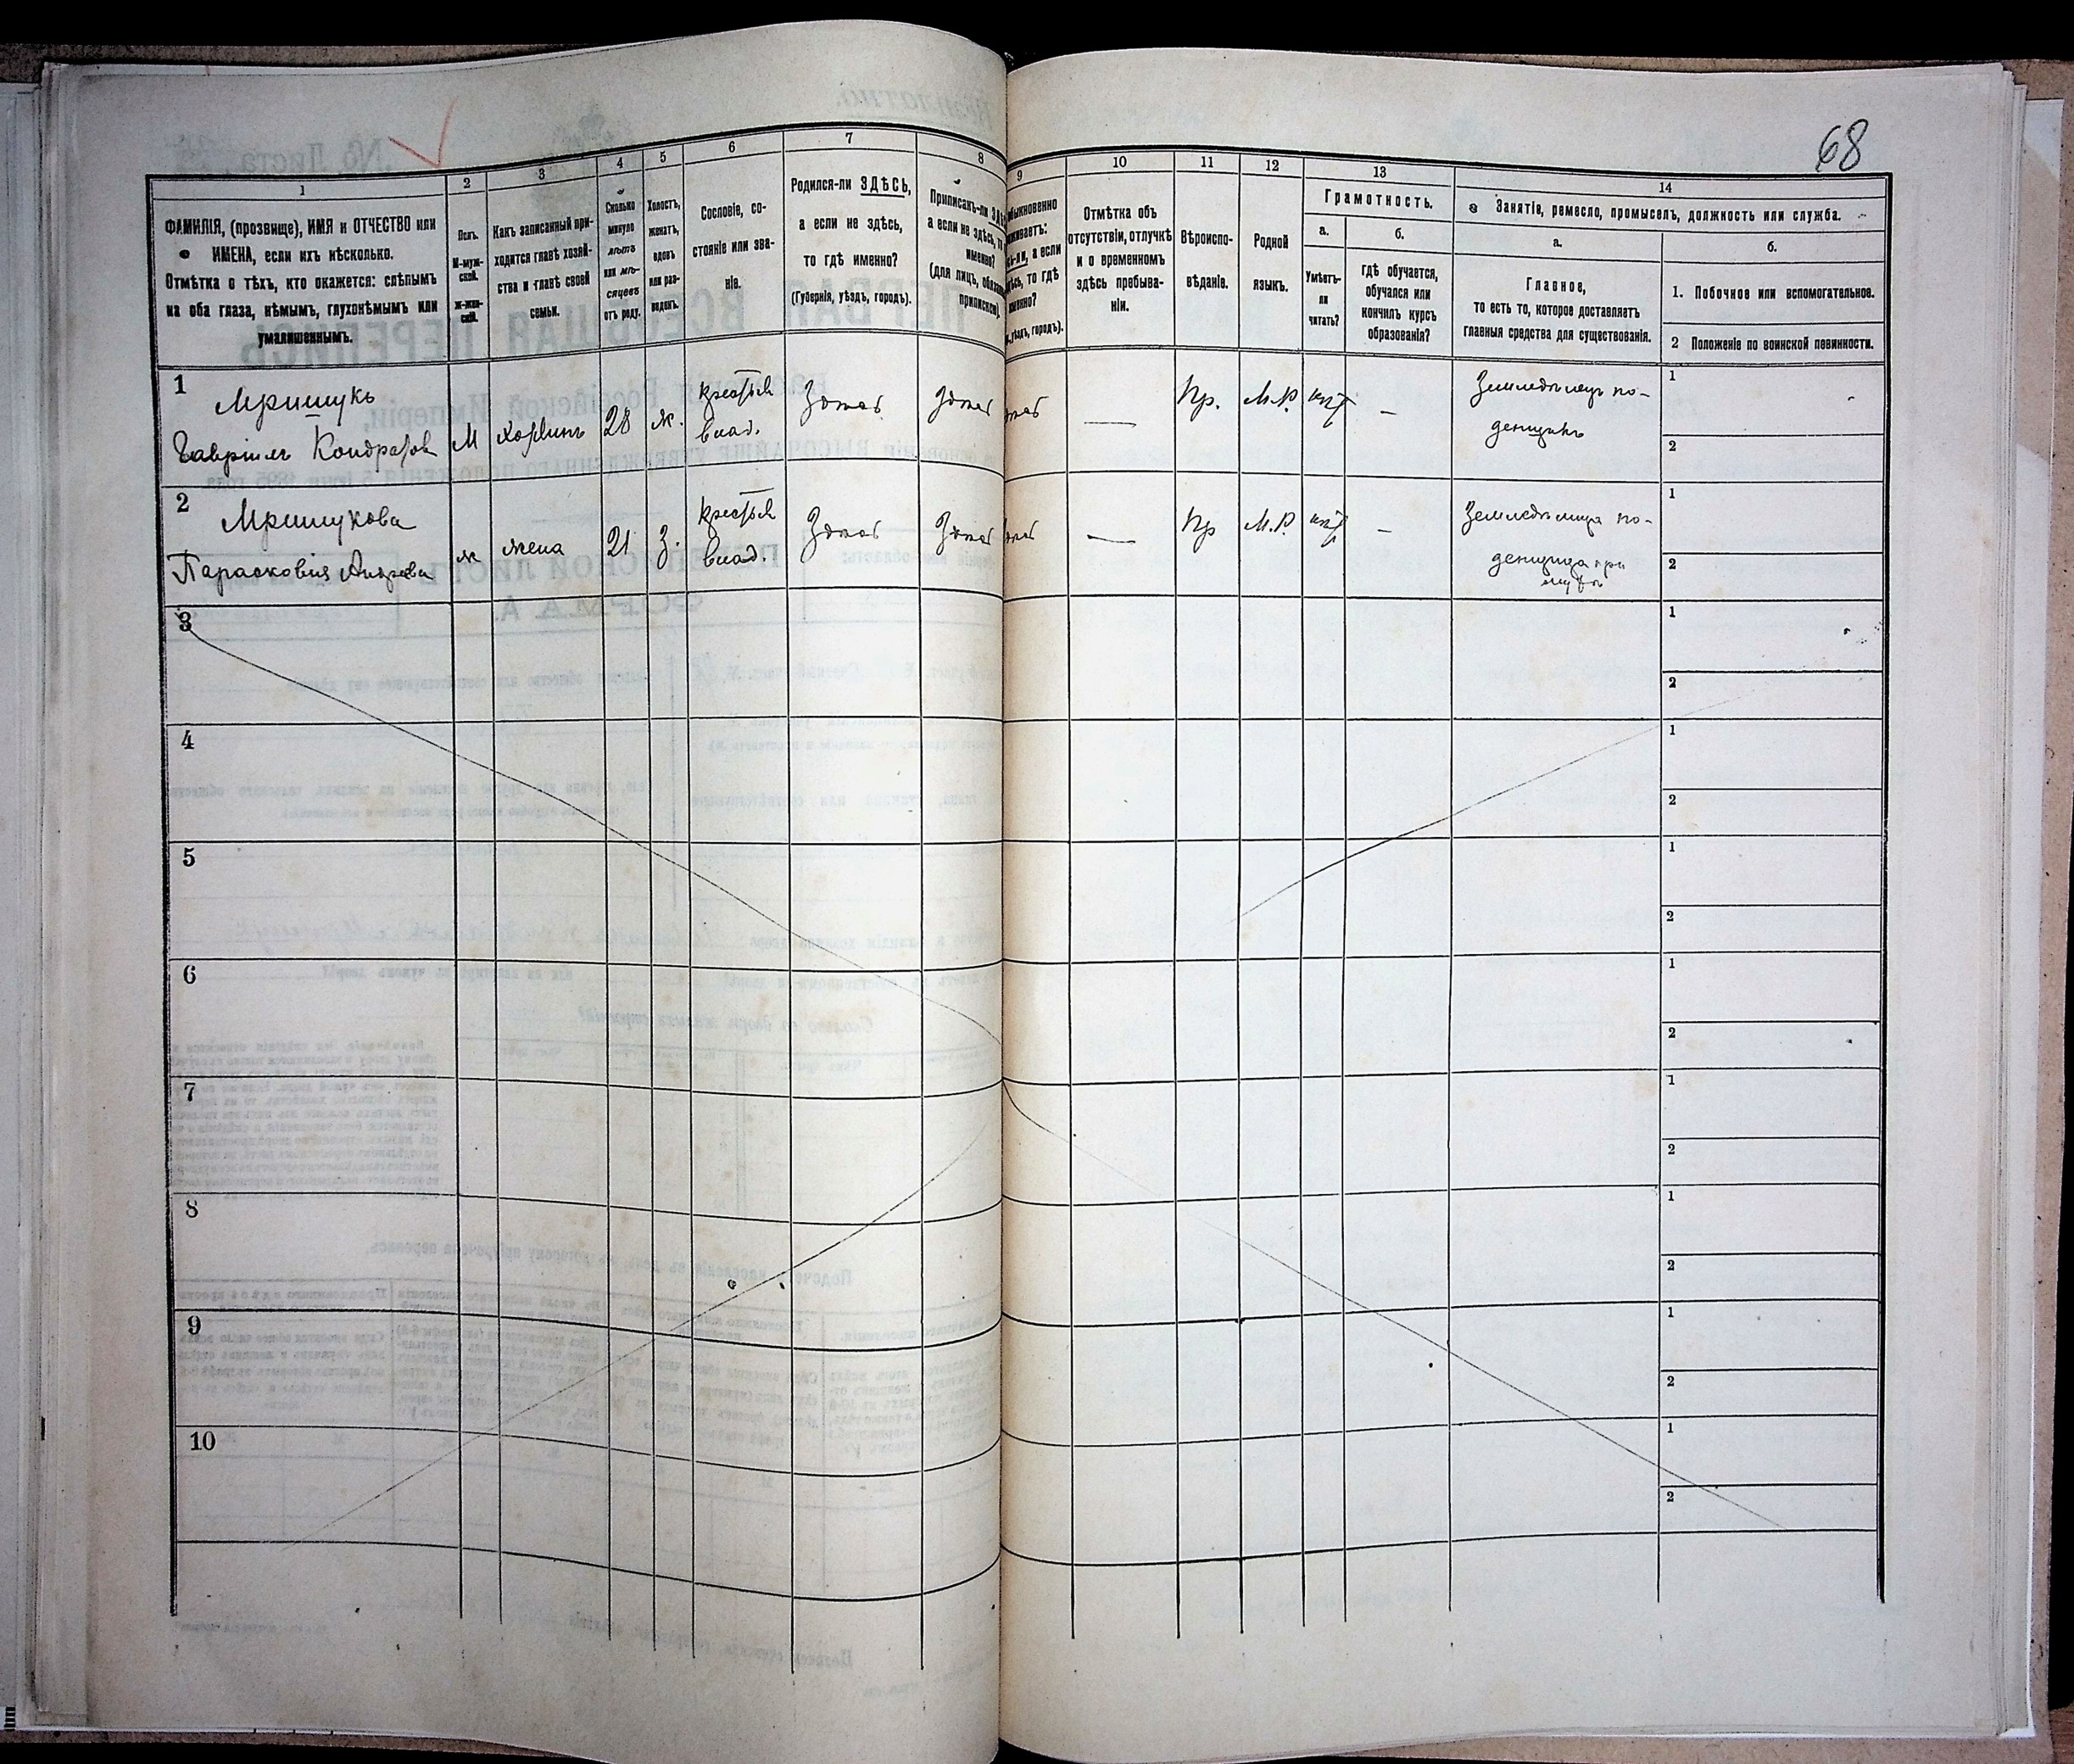 68
1
2
3
4
5
6
7
8
9
10
11
12
13
14
ФАМИЛІЯ, (прозвище), ИМЯ и ОТЧЕСТВО или
ИМЕНА, если ихъ нѣсколько.
Отмѣтка о тѣхъ, кто окажется: слѣпымъ
на оба глаза, нѣмымъ, глухонѣмымъ или
умалишеннымъ.
Полъ.
М-муж-
ской.
ж-жен-
скій.
Какъ записанный при-
ходится главѣ хозяй-
ства и главѣ своей
семьи.
Сколько
минуло
лѣтъ
или мѣ-
сяцевъ
отъ роду.
Холостъ,
женатъ,
вдовъ
или раз-
веденъ.
Сословіе, со-
стояніе или зва-
ніе.
Родился-ли ЗДѢСЬ,
а если не здѣсь,
то гдѣ именно?
(Губернія, уѣздъ, городъ).
Приписанъ-ли
а если не здѣсь, то
именно?
(для лицъ,
Отмѣтка объ
отсутствіи, отлучкѣ
и о временномъ
здѣсь пребыва-
ніи.
Вѣроиспо-
вѣданіе.
Родной
языкъ.
Грамотность.
а.
Умѣетъ-
ли
читать?
б.
гдѣ обучается,
обучался или
кончилъ курсъ
образованія?
Занятіе, ремесло, промыселъ, должность или служба.
а.
Главное,
то есть то, которое доставляетъ
главныя средства для существованія.
б.
1. Побочное или вспомогательное.
2 Положеніе по воинской повинности.
1
Гавріилъ Кондратов
М
хозяинъ
28
ж.
крестьян
влад.
Здѣсь
Здѣсь
—
Пр.
М.Р.
нѣт
—
Земледѣлецъ по-
денщикъ
1
2
2
Парасковія Андреева
ж
жена
21
З.
крестьян
влад.
Здѣсь
Здѣсь
—
Пр
М.Р.
нѣт
—
по-
денщица при
мужѣ
1
2
3
1
2
4
1
2
5
1
2
6
1
2
7
1
2
8
1
2
9
1
2
10
1
2